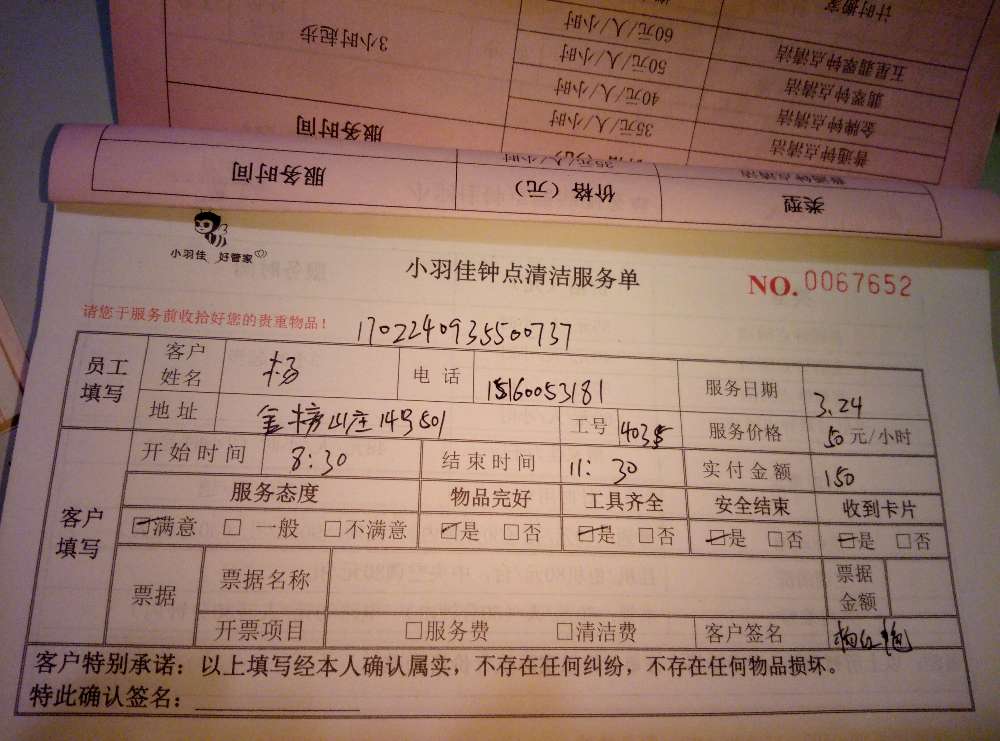 计时搬家
3小时起步 60元/人/小时
50元/人/小时 五星翡翠钟点清洁
40元/人/小时 翡翠钟点清洁
35元/人/小时 金牌钟点清洁
服务时间 普通钟点清洁
35元/人/小时 普通钟点清洁
服务时间 价格(元) 类型
小羽佳 好管家
小羽佳钟点清洁服务单 NO. 0067652
请您于服务前收拾好您的贵重物品!
170224093500737
员工填写 客户姓名 杨 电话 15160053181 服务日期 3.24
地址 金榜山庄14号501 工号 4035 服务价格 50元/小时
客户填写 开始时间 8:30 结束时间 11:30 实付金额 150
服务态度 物品完好 工具齐全 安全结束 收到卡片
☑满意 □一般 □不满意 ☑是 □否 ☑是 □否 ☑是 □否 ☑是 □否
票据 票据名称 票据金额
开票项目 □服务费 □清洁费 客户签名
客户特别承诺:以上填写经本人确认属实,不存在任何纠纷,不存在任何物品损坏。
特此确认签名: